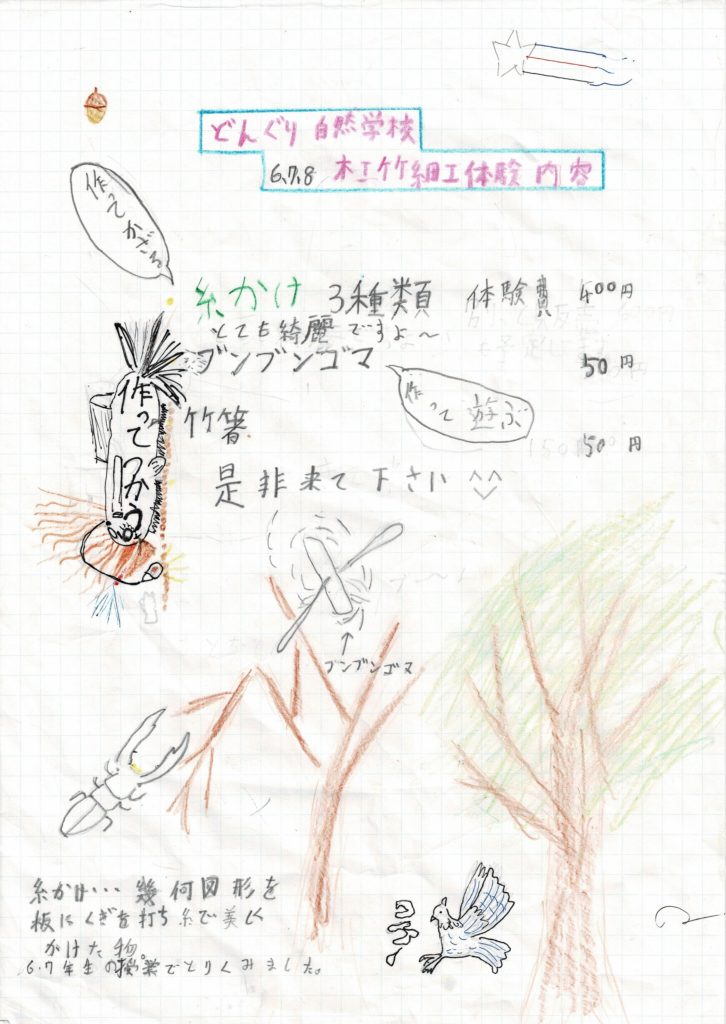 どんぐり 自然学校
6.7.8 木工竹細工体験 内容
作ってかざる
糸かけ 3種類 体験費 400円
とても綺麗ですよ〜
ブンブンゴマ 50円
作って遊ぶ
作ってつかう
竹箸 50円
是非来て下さい ^^
ブンブンゴマ
糸かけ・・・幾何図形を
板にくぎを打ち糸で美しく
かけた物。
6.7年生の授業でとりくみました。